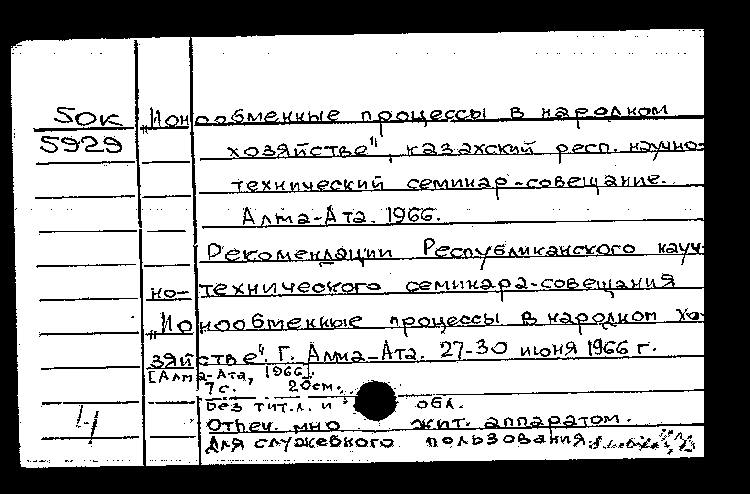 50к
5929
„Ионообменные процессы в народном
хозяйстве", казахский респ. научно-
технический семинар-совещание.
Алма-Ата. 1966.
Рекомендации Республиканского науч-
но-технического семинара-совещания
„Ионообменные процессы в народном хо-
зяйстве". Г. Алма-Ата. 27-30 июня 1966 г.
[Алма-Ата, 1966].
7 с. 20см.
Без тит.л. и обл.
Отпеч. мно жит. аппаратом.
Для служебного пользования.